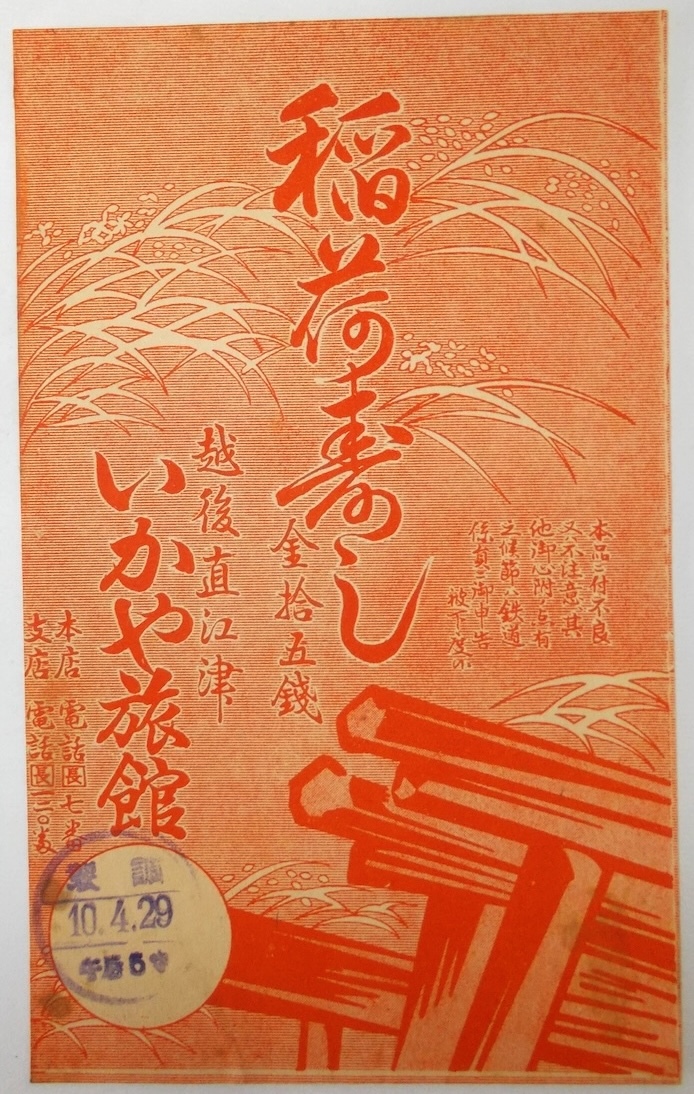 稲荷寿し
金拾五錢
本品ニ付不良
又ハ不注意其
他御心附ノ点有
之候節ハ鉄道
係員ニ御申告
被下度候
越後直江津
いかや旅館
本店 電話長七番
支店 電話長一三〇番
調製
10.4.29
午后5時